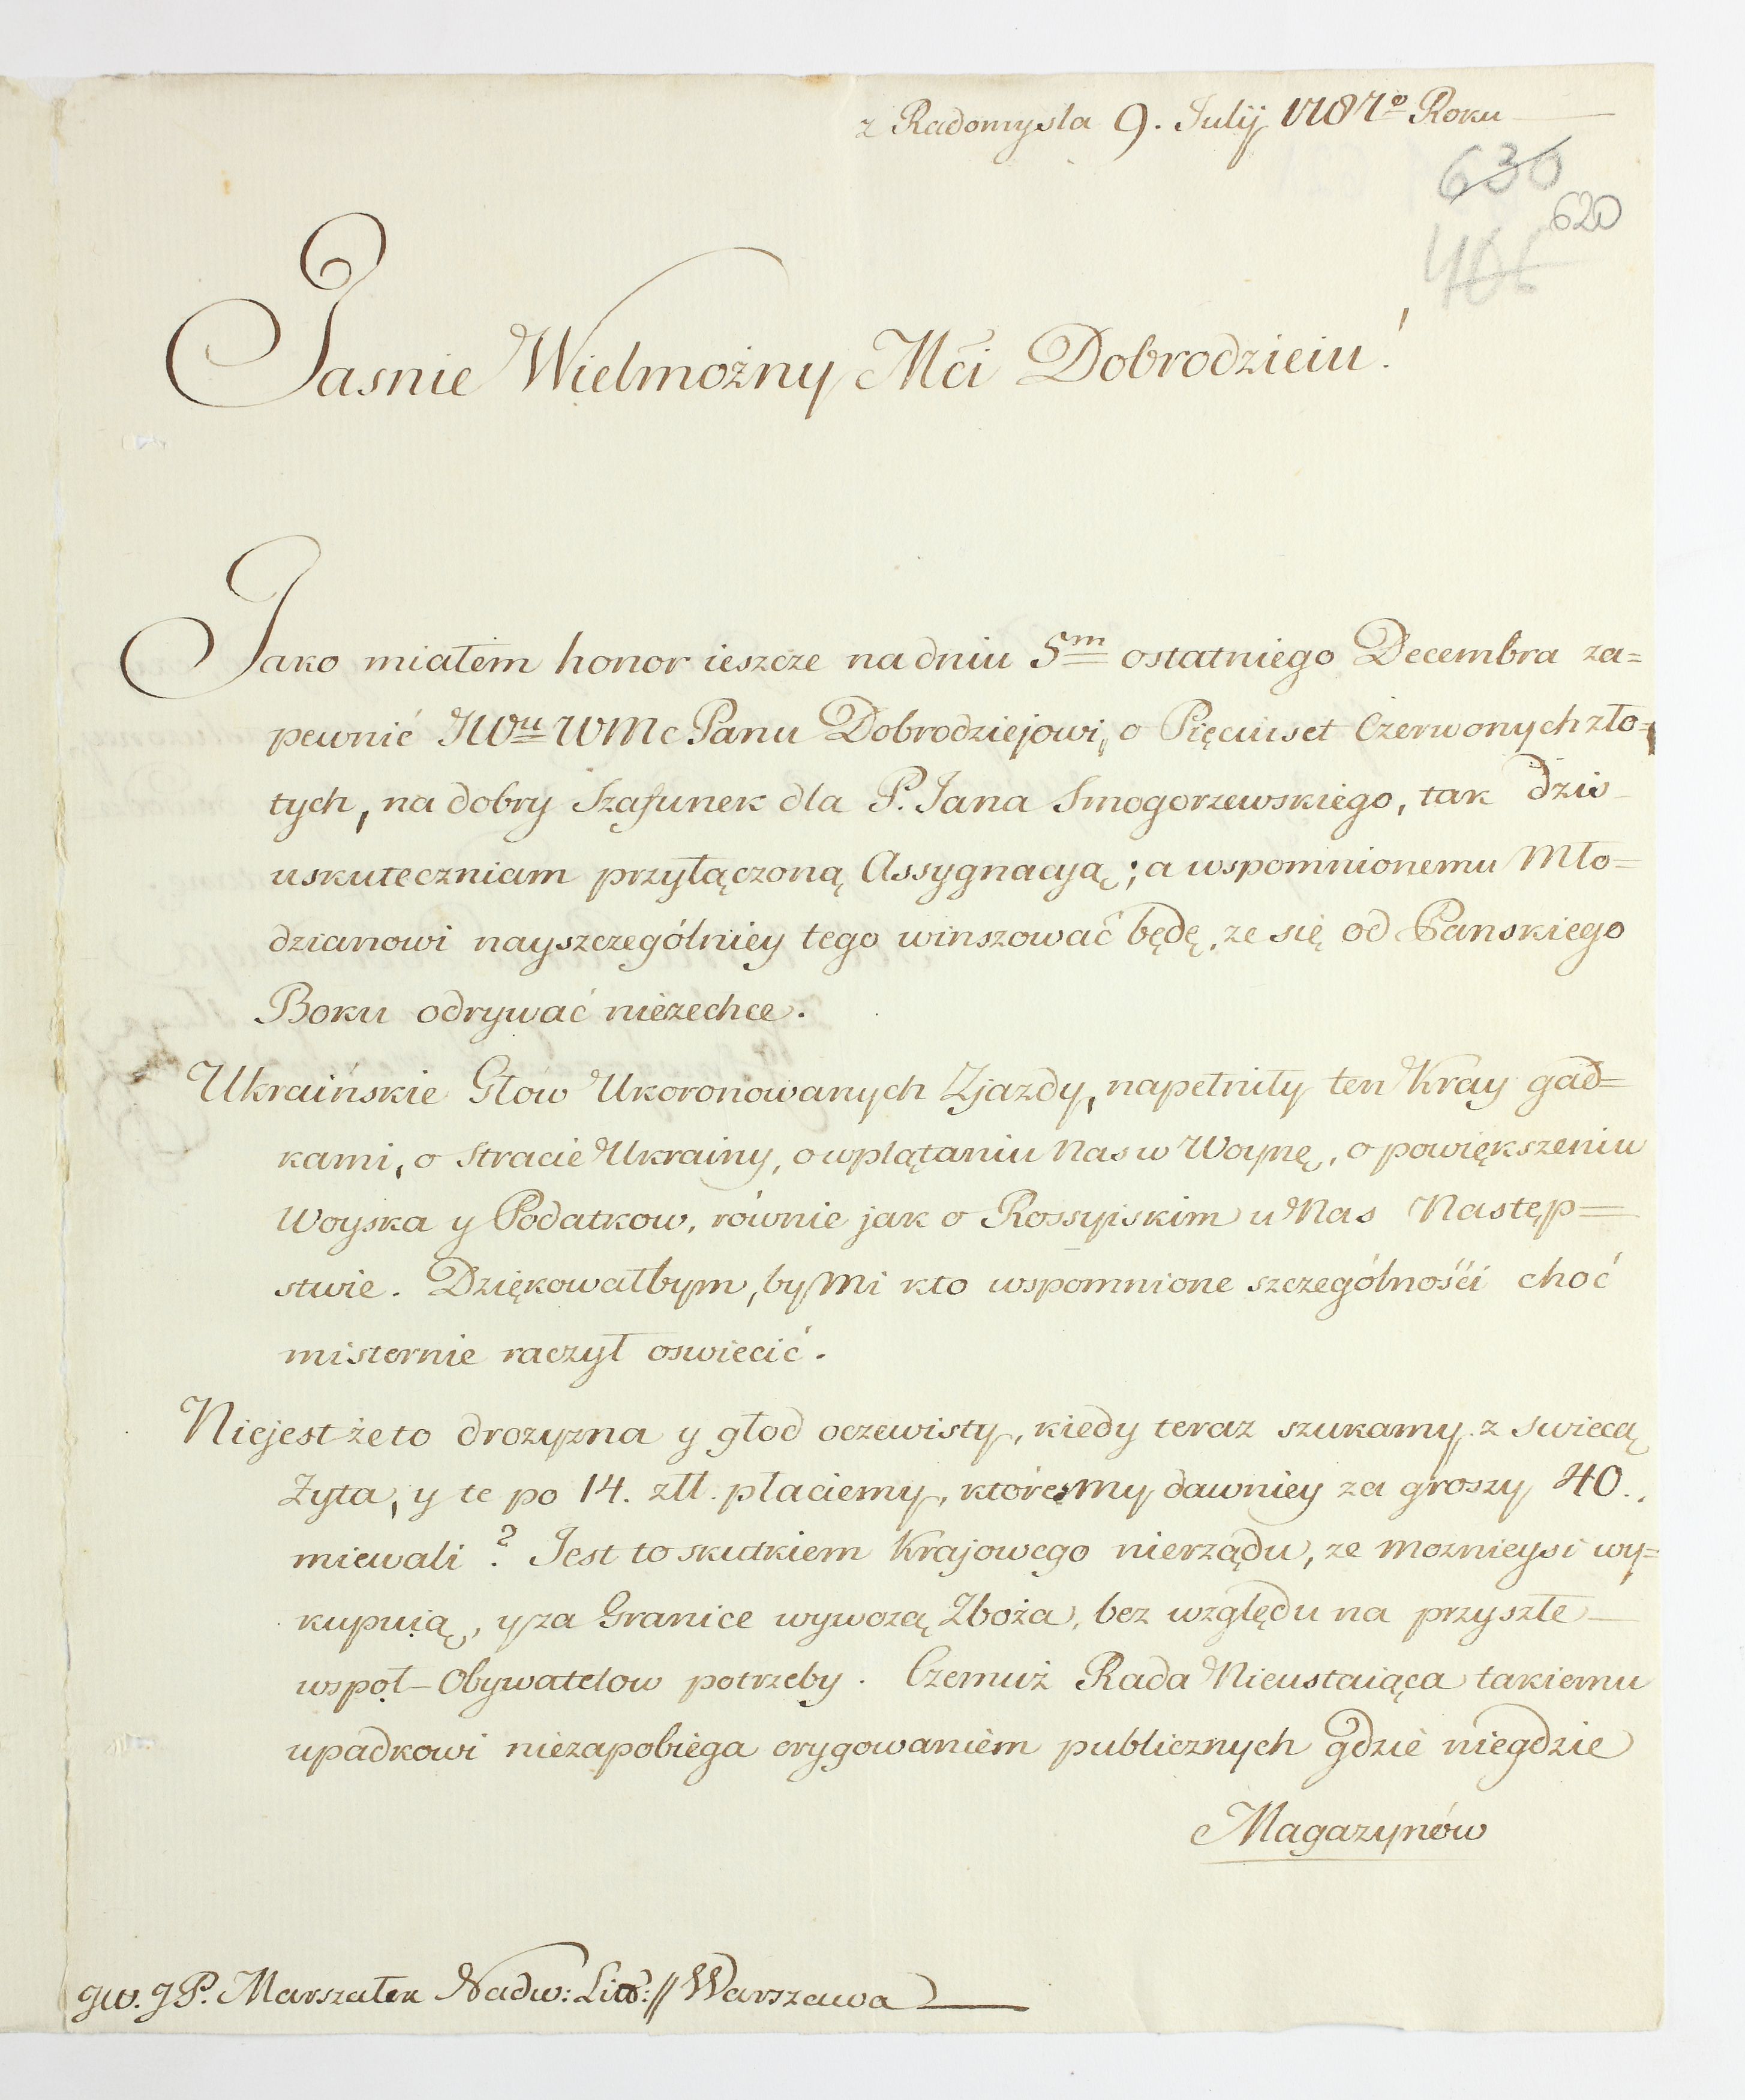 z Radomysla 9. Julij 1787º Roku
630
620
Jasnie Wielmożny Mći Dobrodzieiu!
Jako miałem honor ieszcze na dniu 5m ostatniego Decembra za=
pewnić JWu WMc Panu Dobrodziejowi, o Pięciuset Czerwonych zło=
tych, na dobry Szafunek dla P. Jana Smogorzewskiego, tak dzis
uskuteczniam przyłączoną Assygnacyją; a wspomnionemu Mło=
dzianowi nayszczególniey tego winszować będę, ze się od Panskiego
Boku odrywać niezechce.
Ukraińskie Głow Ukoronowanych Zjazdy, napełniły ten Kray gad=
kami, o Stracie Ukrainy, o wplątaniu Nas w Woynę, o powiększeniu
Woyska y Podatkow, równie jak o Rossyiskim u Nas Następ=
stwie. Dziękowałbym, by Mi kto wspomnione szczególnośći choć
misternie raczył oswiecić.
Niejest że to drozyzna y głod oczewisty, kiedy teraz szukamy z swiecą
Żyta, y te po 14. złł. płaciemy, któresmy dawniey za groszy 40.
miewali? Jest to skutkiem Krajowego nierządu, ze moznieysi wy=
kupuią, y za Granice wywozą Zboża, bez względu na przyszłe
wspoł-Obywatelow potrzeby. Czemuż Rada Nieustaiąca takiemu
upadkowi niezapobiega erygowaniem publicznych gdzie niegdzie
Magazynów
JW. JP. Marszałek Nadw: Litt: // Warszawa